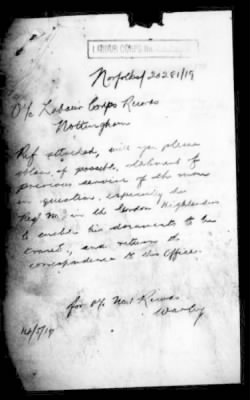 LABOUR CORPS No.
Norfolks/20281/19
O/c Labour Corps Records
Nottingham
Ref attached, will you please
obtain if possible, statement of
previous service of the man
in question, especially his
Regt No. in the Gordon Highlanders
to enable his documents to be
traced, and return
correspondence to this Office.
for O/c No 1 Records
Warley
14/5/19